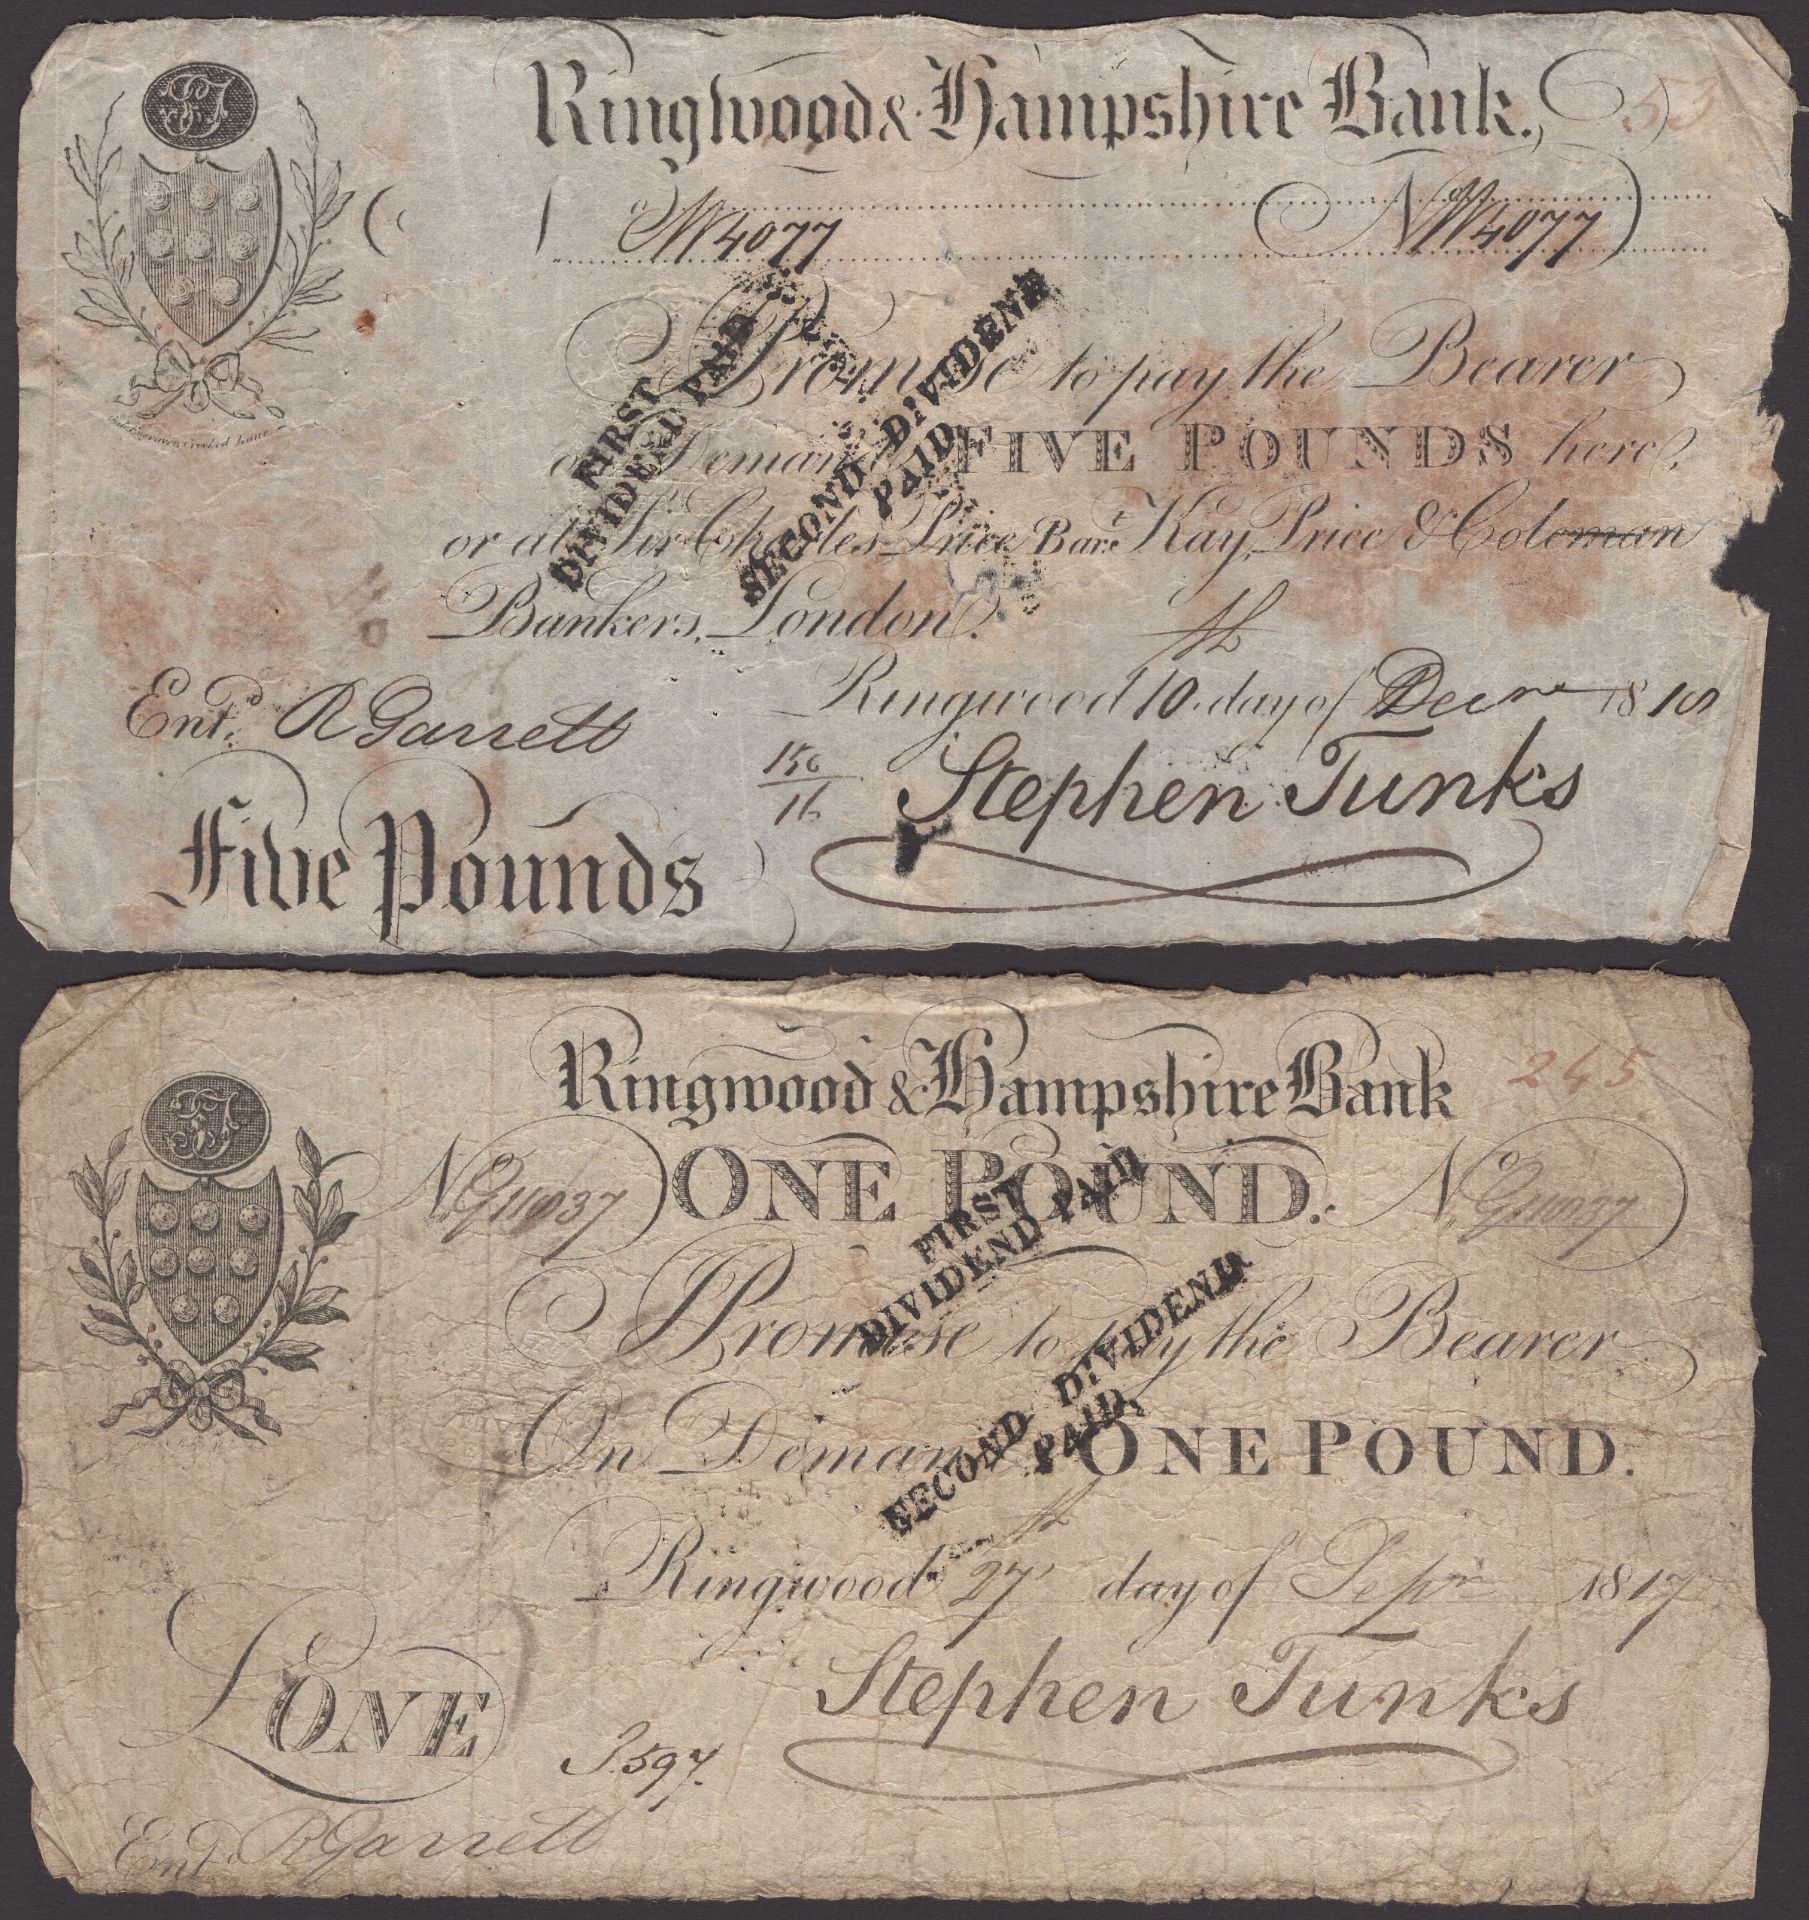 Ringwood & Hampshire Bank.
53
No W4077
No W4077
I Promise to pay the Bearer
on Demand FIVE POUNDS here,
or at Sir Charles Price Bart. Kay, Price & Coleman
Bankers, London.
Ringwood 10th day of Decr 1818
Entd. R Garrett
150
16
Stephen Tunks
Five Pounds
Crooked Lane
FIRST
DIVIDEND PAID
SECOND DIVIDEND
PAID
Ringwood & Hampshire Bank
245
No G11037 ONE POUND. No G11037
I Promise to pay the Bearer
On Demand ONE POUND.
Ringwood 27th day of Sepr 1817
Stephen Tunks
£ONE
597.
Entd R Garrett
FIRST
DIVIDEND PAID
SECOND DIVIDEND
PAID,